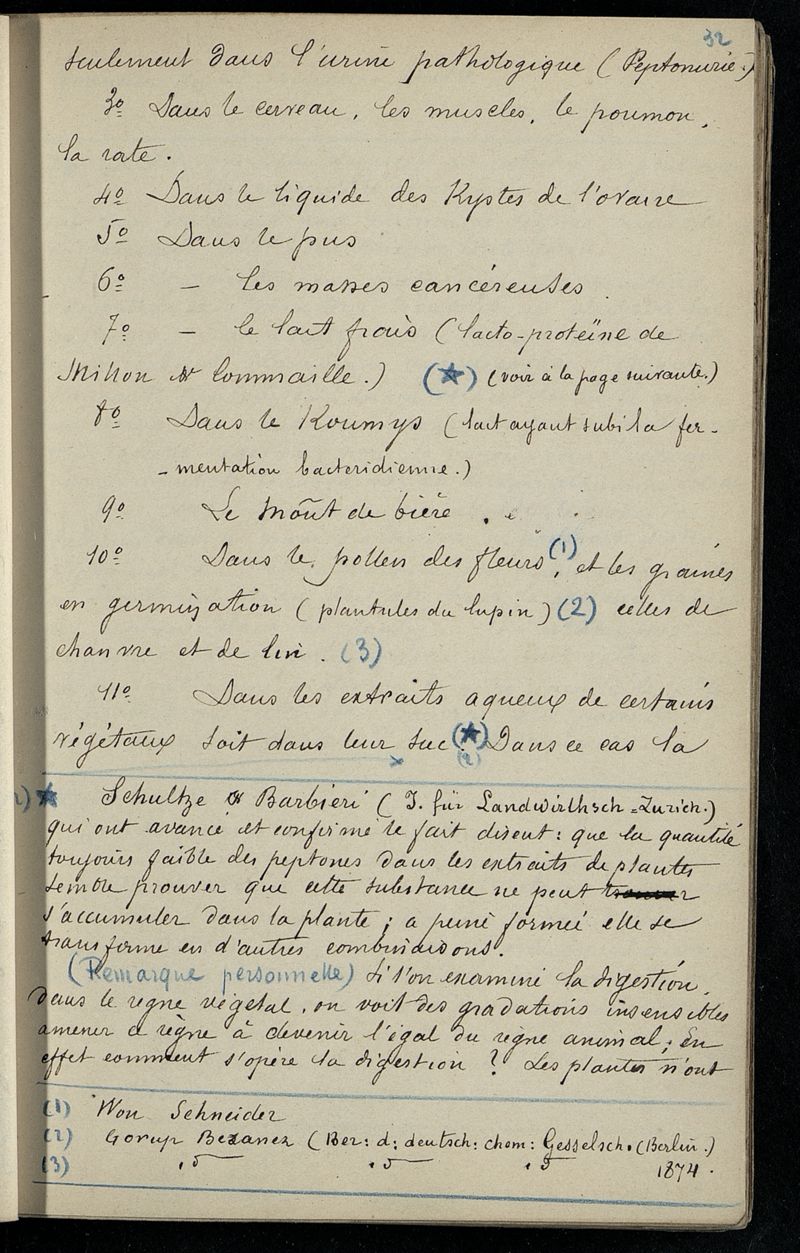 32
seulement dans l'urine pathologique (Peptonurie.)
3º Dans le cerveau, les muscles, le poumon,
la rate.
4º Dans le liquide des Kystes de l'ovaire
5º Dans le pus
6º — les masses cancéreuses.
7º — le lait frais (lacto-protéïne de
Millon et Commaille.) (★) (voir à la page suivante.)
8º Dans le Koumys (lait ayant subi la fer-
-mentation bacteridienne.)
9º Le moût de bière.
10º Dans le pollen des fleurs (1), et les graines
en germination (plantules du lupin) (2) celles de
chanvre et de lin. (3)
11º Dans les extraits aqueux de certains
végétaux soit dans leur suc (★). Dans ce cas la
★ Schultze et Barbieri (J. für Landwirthsch = Zurich.)
qui ont avancé et confirmé le fait disent: que la quantité
toujours faible des peptones dans les extraits de plantes
semble prouver que cette substance ne peut
s'accumuler dans la plante; a peine formée elle se
transforme en d'autres combinaisons.
(Remarque personnelle) Si l'on examine la digestion
dans le règne végétal, on voit des gradations insensibles
amener ce règne à devenir l'égal du règne animal; En
effet comment s'opère la digestion? Les plantes n'ont
(1) Won Schneider
(2) Gorup Bezanez (Ber: d: deutsch: chem: Gesselsch. (Berlin.)
(3) 1874.